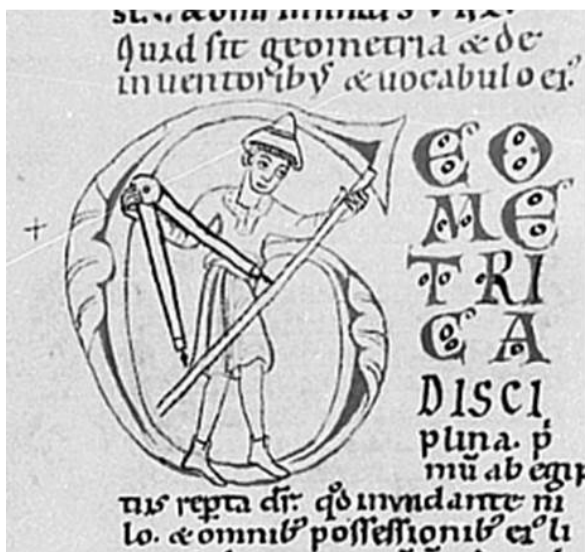 Quid sit geometria & de
inuentorib; & uocabulo ei᾽.
GEO
ME
TRI
CA
DISCI
plina. p̄
mū ab egip
tiis rep̄ta dr̄. qd̓ inundante ni
lo. & omnib; possessionib; ei᾽ li